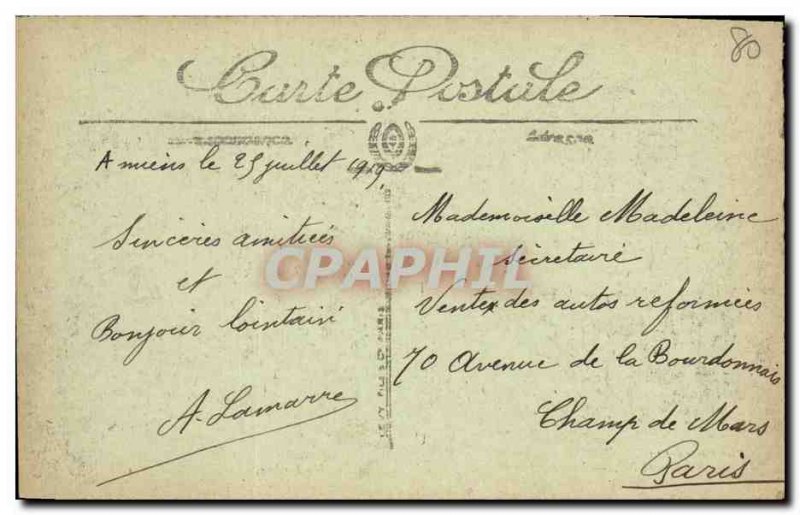 80
Carte Postale
Adresse
Amiens le 25 juillet 1919
Sincères amitiés
et
Bonjour lointain
A. Lamarre
Mademoiselle Madeleine
secretaire
Vente des autos reformées
70 Avenue de la Bourdonnais
Champ de Mars
Paris
CPAPHIL